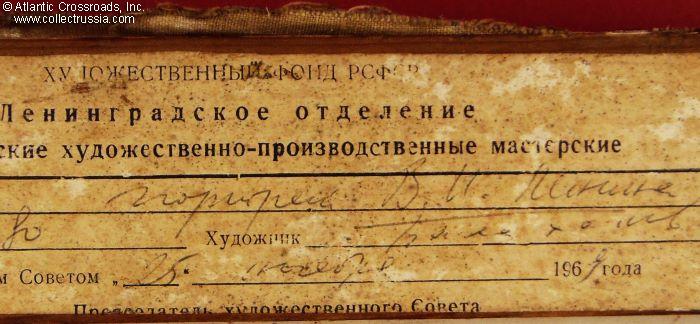 © Atlantic Crossroads, Inc.
www.collectrussia.com
ХУДОЖЕСТВЕННЫЙ ФОНД РСФСР
Ленинградское отделение
ские художественно-производственные мастерские
портрет В. И. Ленина
80 Художник
м Советом „25" ноября 1969 года
Председатель художественного Совета